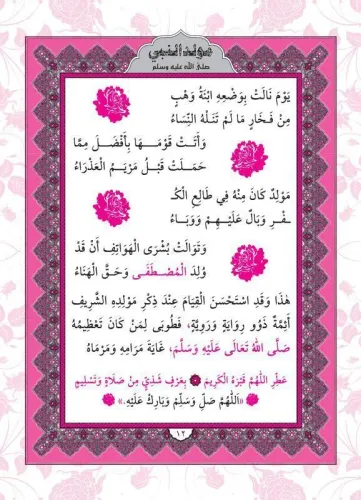 مولد النبي
صلى الله عليه وسلم
يَوْمَ نَالَتْ بِوَضْعِهِ ابْنَةُ وَهْبٍ
مِنْ فَخَارٍ مَا لَمْ تَنَلْهُ النِّسَاءُ
وَأَتَتْ قَوْمَهَا بِأَفْضَلَ مِمَّا
حَمَلَتْ قَبْلُ مَرْيَمُ الْعَذْرَاءُ
مَوْلِدٌ كَانَ مِنْهُ فِي طَالِعِ الْكُـ
ـفْرِ وَبَالٌ عَلَيْهِمْ وَوَبَاءُ
وَتَوَالَتْ بُشْرَى الْهَوَاتِفِ أَنْ قَدْ
وُلِدَ الْمُصْطَفَى وَحَقَّ الْهَنَاءُ
هٰذَا وَقَدِ اسْتَحْسَنَ الْقِيَامَ عِنْدَ ذِكْرِ مَوْلِدِهِ الشَّرِيفِ
أَئِمَّةٌ ذَوُو رِوَايَةٍ وَرَوِيَّةٍ، فَطُوبَى لِمَنْ كَانَ تَعْظِيمُهُ
صَلَّى اللهُ تَعَالَى عَلَيْهِ وَسَلَّمَ، غَايَةَ مَرَامِهِ وَمَرْمَاهُ
عَطِّرِ اللّٰهُمَّ قَبْرَهُ الْكَرِيمَ بِعَرْفٍ شَذِيٍّ مِنْ صَلَاةٍ وَتَسْلِيمٍ
«اَللّٰهُمَّ صَلِّ وَسَلِّمْ وَبَارِكْ عَلَيْهِ.»
١٢